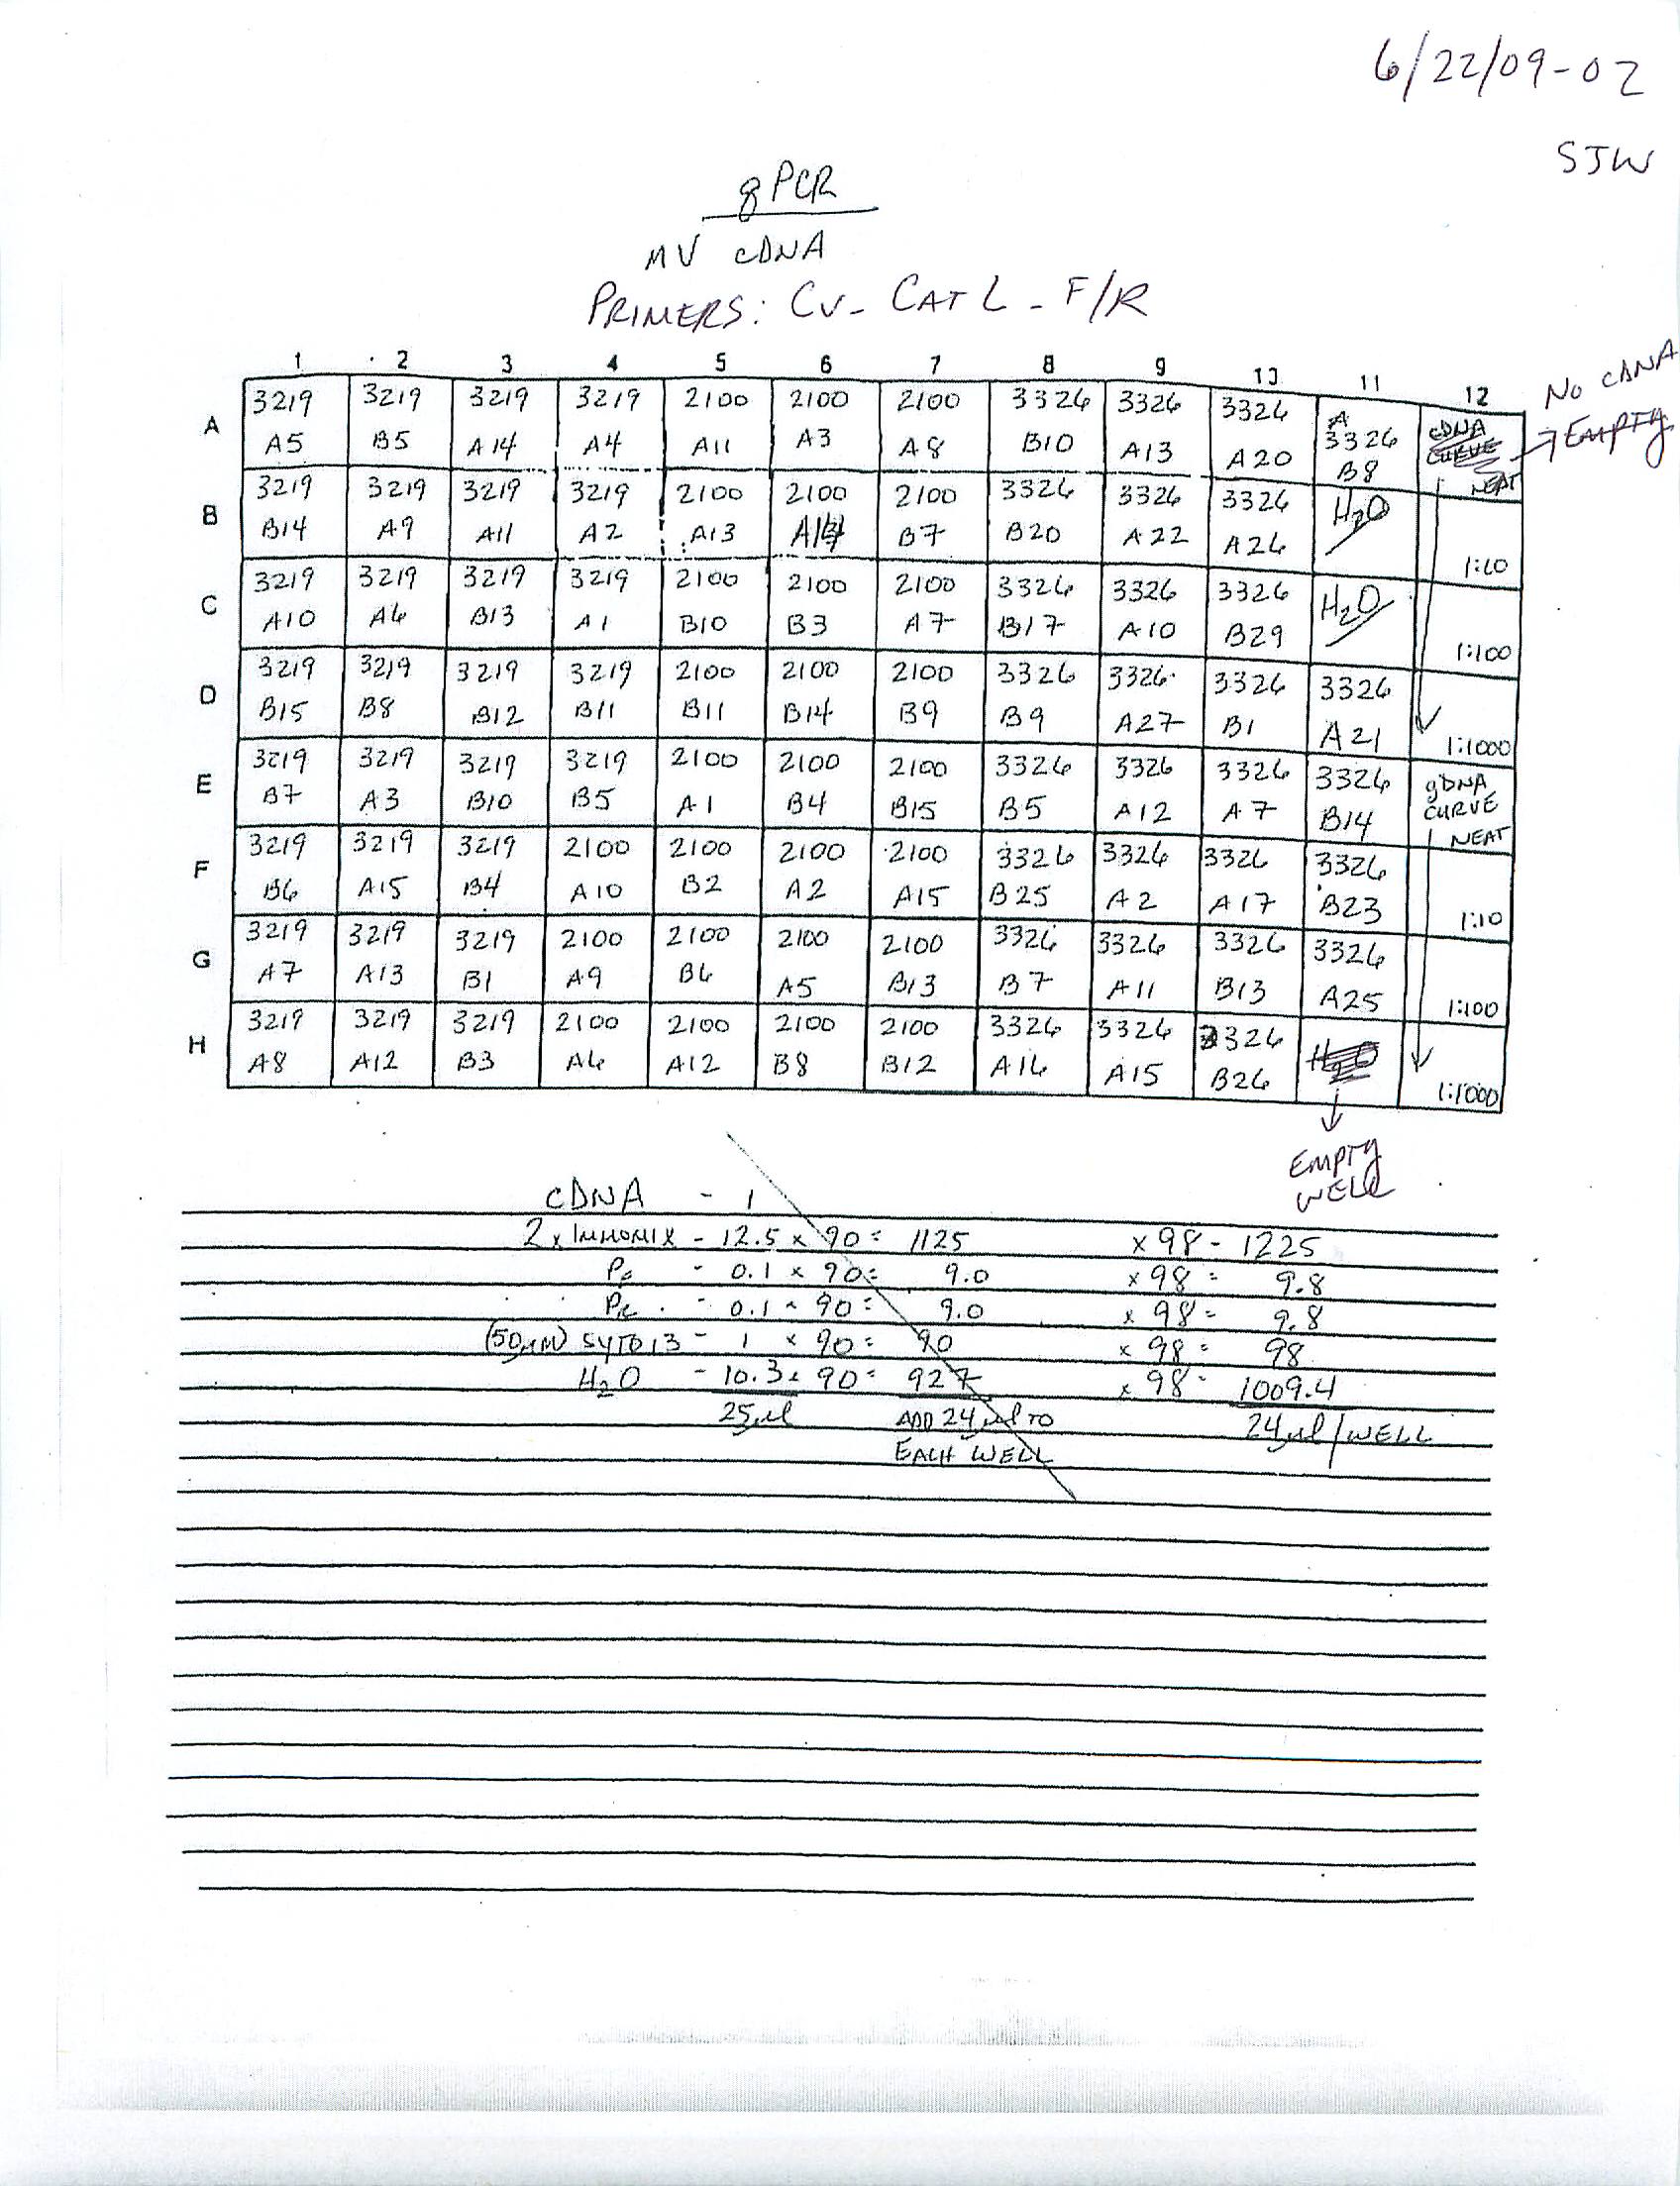 6/22/09-02
SJW
qPCR
MV cDNA
PRIMERS: CV_CATL_F/R
1 2 3 4 5 6 7 8 9 10 11 12
No cDNA
EMPTY
A 3219 3219 3219 3219 2100 2100 2100 3326 3326 3326 3326 cDNA CURVE
A5 B5 A14 A4 A11 A3 A8 B10 A13 A20 B8 NEAT
B 3219 3219 3219 3219 2100 2100 2100 3326 3326 3326 H2O
B14 A9 A11 A2 A13 B7 B20 A22 A26 1:10
C 3219 3219 3219 3219 2100 2100 2100 3326 3326 3326 H2O
A10 A6 B13 A1 B10 B3 A7 B17 A10 B29 1:100
D 3219 3219 3219 3219 2100 2100 2100 3326 3326 3326 3326
B15 B8 B12 B11 B11 B14 B9 B9 A27 B1 A21 1:1000
E 3219 3219 3219 3219 2100 2100 2100 3326 3326 3326 3326 gDNA CURVE
B7 A3 B10 B5 A1 B4 B15 B5 A12 A7 B14 NEAT
F 3219 3219 3219 2100 2100 2100 2100 3326 3326 3326 3326
B6 A15 B4 A10 B2 A2 A15 B25 A2 A17 B23 1:10
G 3219 3219 3219 2100 2100 2100 2100 3326 3326 3326 3326
A7 A13 B1 A9 B6 A5 B13 B7 A11 B13 A25 1:100
H 3219 3219 3219 2100 2100 2100 2100 3326 3326 3326 H2O
A8 A12 B3 A6 A12 B8 B12 A16 A15 B26 1:1000
EMPTY
WELL
cDNA - 1
2x IMMOMIX - 12.5 x 90 = 1125 x 98 - 1225
PF - 0.1 x 90 = 9.0 x 98 = 9.8
PR - 0.1 x 90 = 9.0 x 98 = 9.8
(50µM) SYTO13 - 1 x 90 = 90 x 98 = 98
H2O - 10.3 x 90 = 927 x 98 = 1009.4
25µl ADD 24µl TO 24µl/WELL
EACH WELL